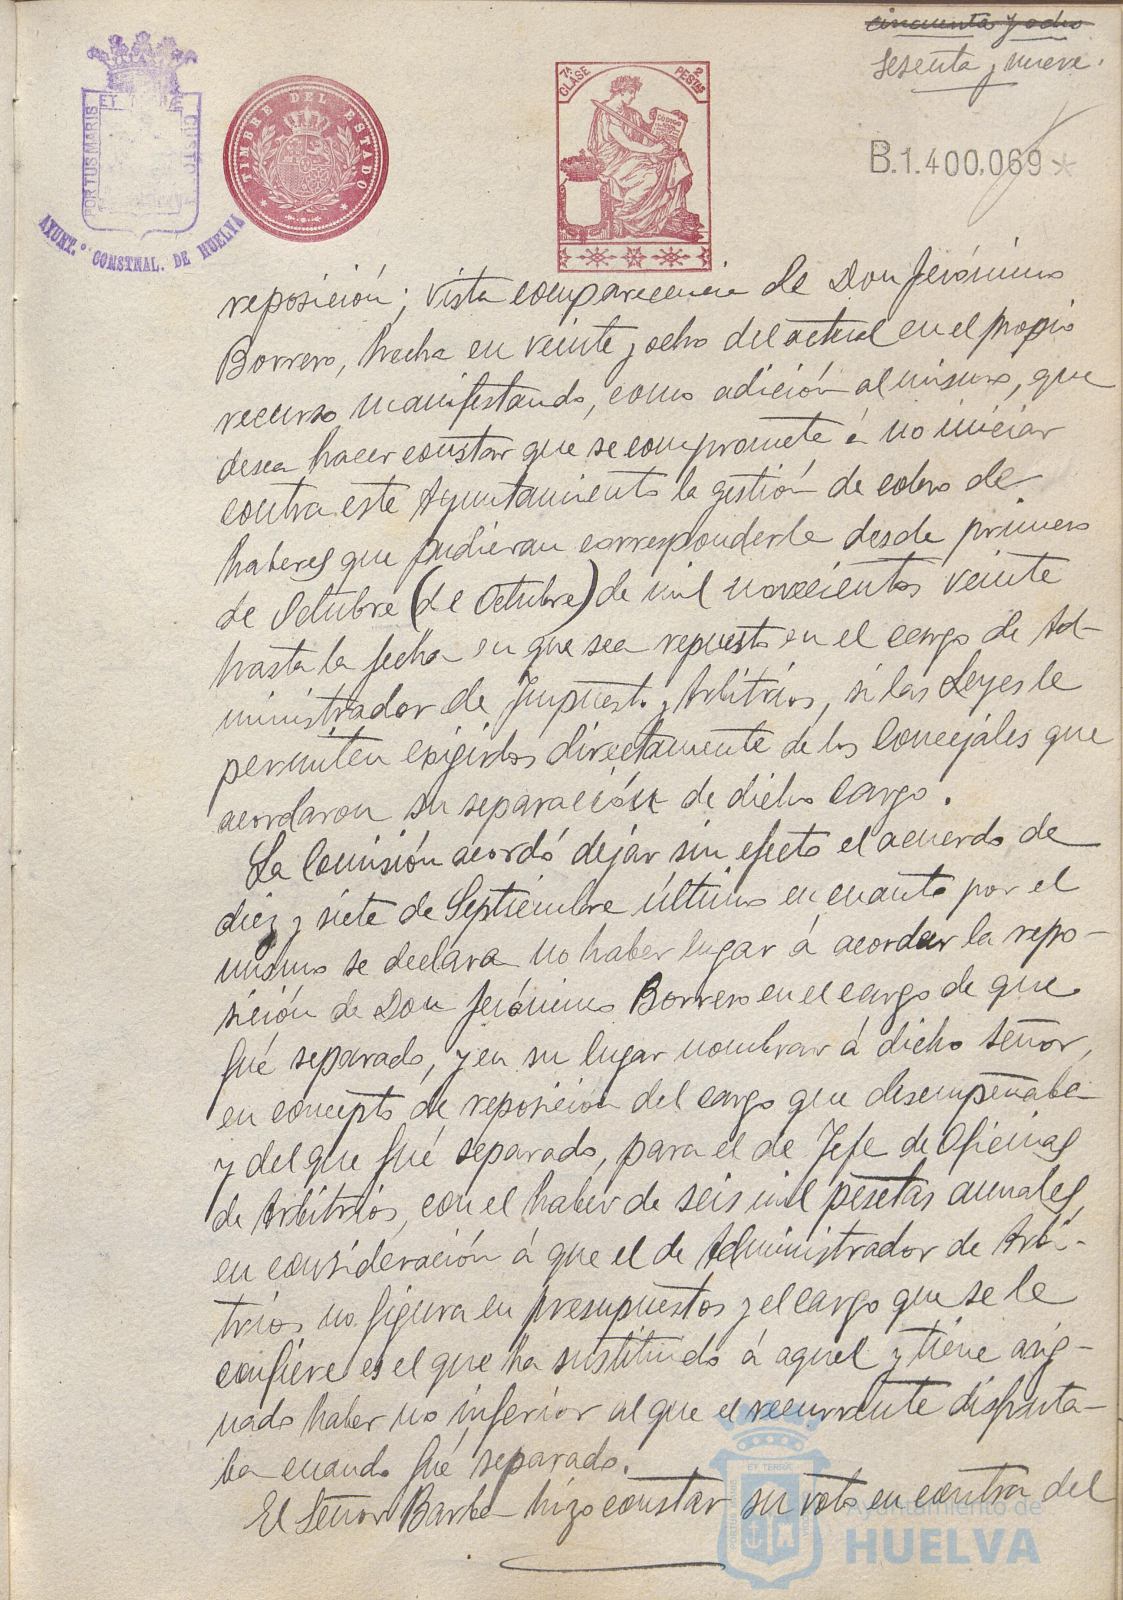 cincuenta y ocho
Sesenta y nueve.
PORTUS MARIS ET TERRÆ CUSTO
AYUNT.º CONSTNAL. DE HUELVA
TIMBRE DEL ESTADO
7ª CLASE 2 PESTAS
CODIGO
B.1.400.069
reposición; vista comparecencia de Don Jerónimo
Borrero, hecha en veinte y ocho del actual en el propio
recurso manifestando, como adición al mismo, que
desea hacer constar que se compromete á no iniciar
contra este Ayuntamiento la gestión de cobro de
haberes que pudieran corresponderle desde primero
de Octubre (de Octubre) de mil novecientos veinte
hasta la fecha en que sea repuesto en el cargo de Ad-
ministrador de Impuestos y Arbitrios, si las Leyes le
permiten exigirlos directamente de los Concejales que
acordaron su separación de dicho cargo.
La Comisión acordó dejar sin efecto el acuerdo de
diez y siete de Septiembre último en cuanto por el
mismo se declara no haber lugar á acordar la repo-
sición de Don Jerónimo Borrero en el cargo de que
fué separado, y en su lugar nombrar á dicho señor,
en concepto de reposición del cargo que desempeñaba
y del que fué separado, para el de Jefe de Oficinas
de Arbitrios, con el haber de seis mil pesetas anuales,
en consideración á que el de Administrador de Arbi-
trios no figura en presupuestos y el cargo que se le
confiere es el que ha sustituido á aquel y tiene asig-
nado haber no inferior al que el recurrente disfruta-
ba cuando fué separado.
El Señor Barba hizo constar su voto en contra del
Ayuntamiento de
HUELVA